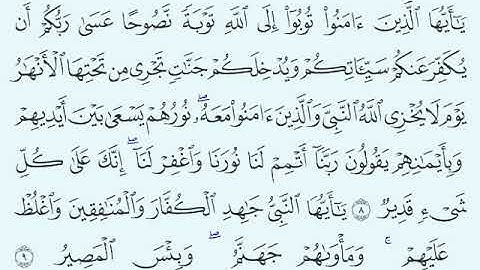 يَـٰٓأَيُّهَا ٱلَّذِينَ ءَامَنُوا۟ تُوبُوٓا۟ إِلَى ٱللَّهِ تَوْبَةً نَّصُوحًا عَسَىٰ رَبُّكُمْ أَن
يُكَفِّرَ عَنكُمْ سَيِّـَٔاتِكُمْ وَيُدْخِلَكُمْ جَنَّـٰتٍ تَجْرِى مِن تَحْتِهَا ٱلْأَنْهَـٰرُ
يَوْمَ لَا يُخْزِى ٱللَّهُ ٱلنَّبِىَّ وَٱلَّذِينَ ءَامَنُوا۟ مَعَهُۥ ۖ نُورُهُمْ يَسْعَىٰ بَيْنَ أَيْدِيهِمْ
وَبِأَيْمَـٰنِهِمْ يَقُولُونَ رَبَّنَآ أَتْمِمْ لَنَا نُورَنَا وَٱغْفِرْ لَنَآ ۖ إِنَّكَ عَلَىٰ كُلِّ
شَىْءٍ قَدِيرٌ ٨ يَـٰٓأَيُّهَا ٱلنَّبِىُّ جَـٰهِدِ ٱلْكُفَّارَ وَٱلْمُنَـٰفِقِينَ وَٱغْلُظْ
عَلَيْهِمْ ۚ وَمَأْوَىٰهُمْ جَهَنَّمُ ۖ وَبِئْسَ ٱلْمَصِيرُ ٩